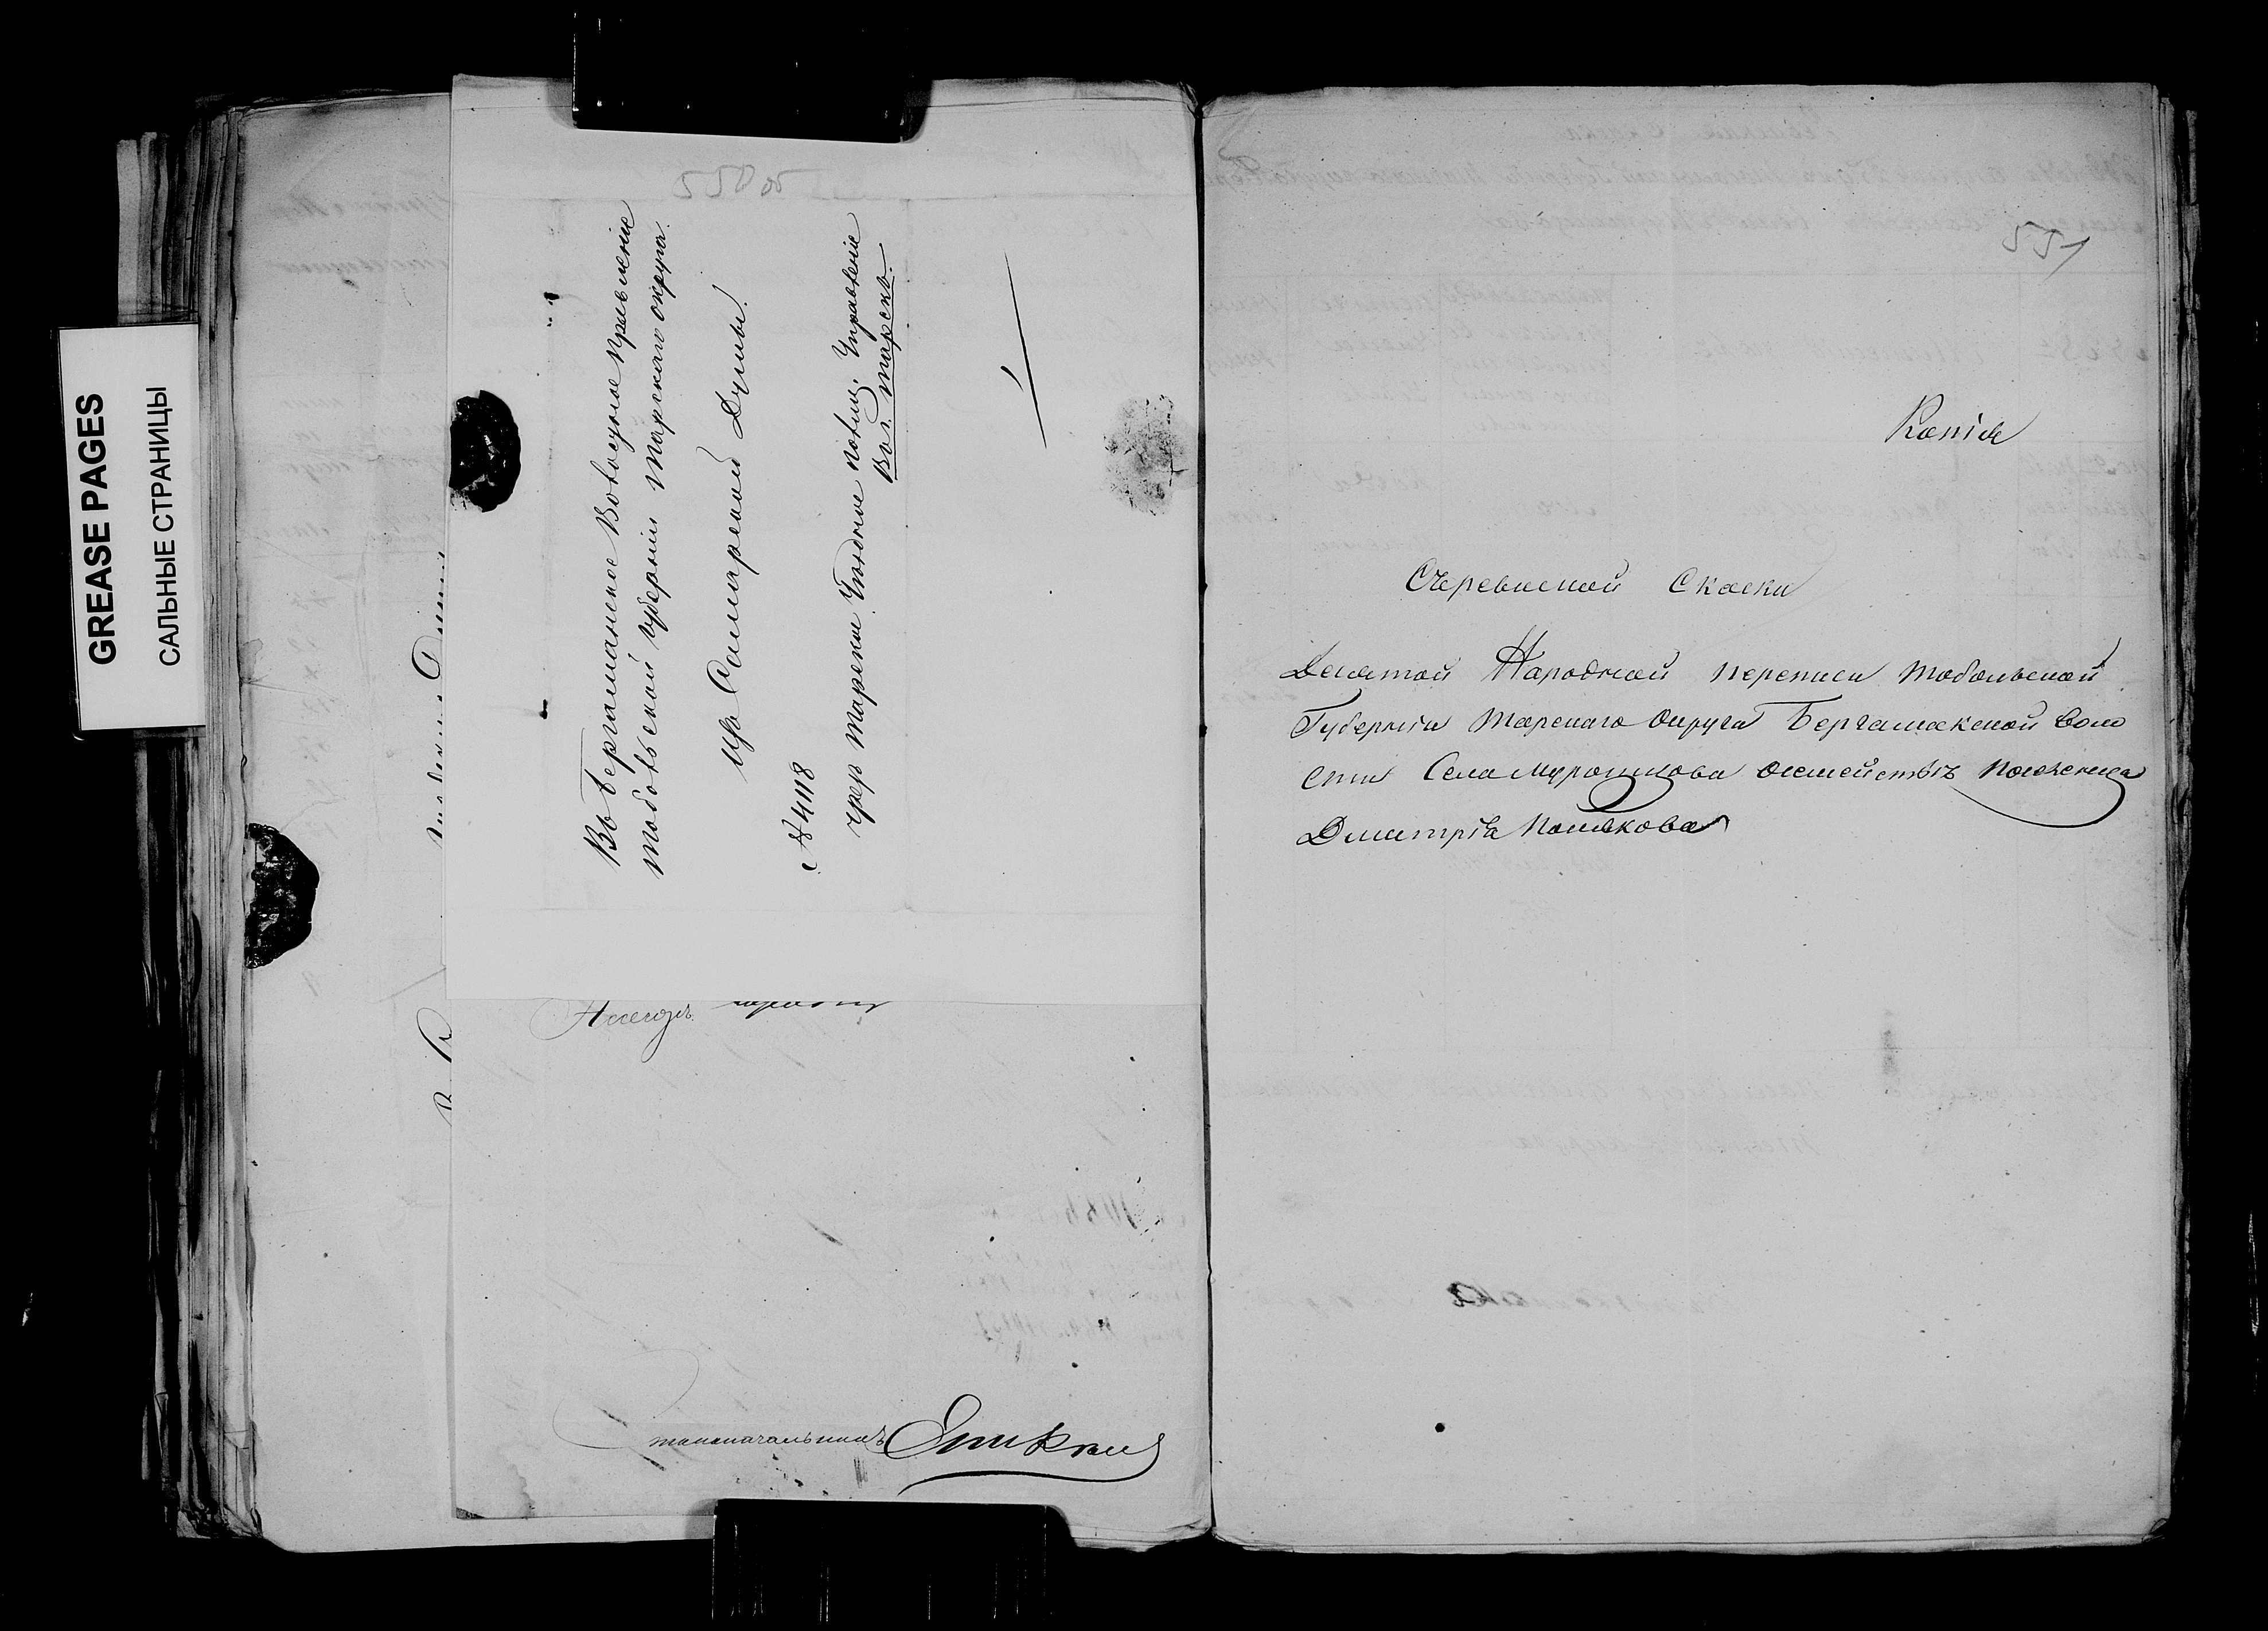 GREASE PAGES
САЛЬНЫЕ СТРАНИЦЫ
550 об
Въ Бергамакское Волосное Правленіе
Тобольской губерніи Тарскаго округа.
Изъ Самарской Думы.
№ 4118
Чрез Тарское Уѣздное полиц. Управленіе
Вол. Тарскъ.
Столоначальникъ
551
Копія
Съревиской Скаски
Десятой Народной переписи Тобольской
Губерніи Тарскаго Округа Бергамакской воло
сти Села Муромцова осемействѣ Поселенца
Дмитрія Полякова